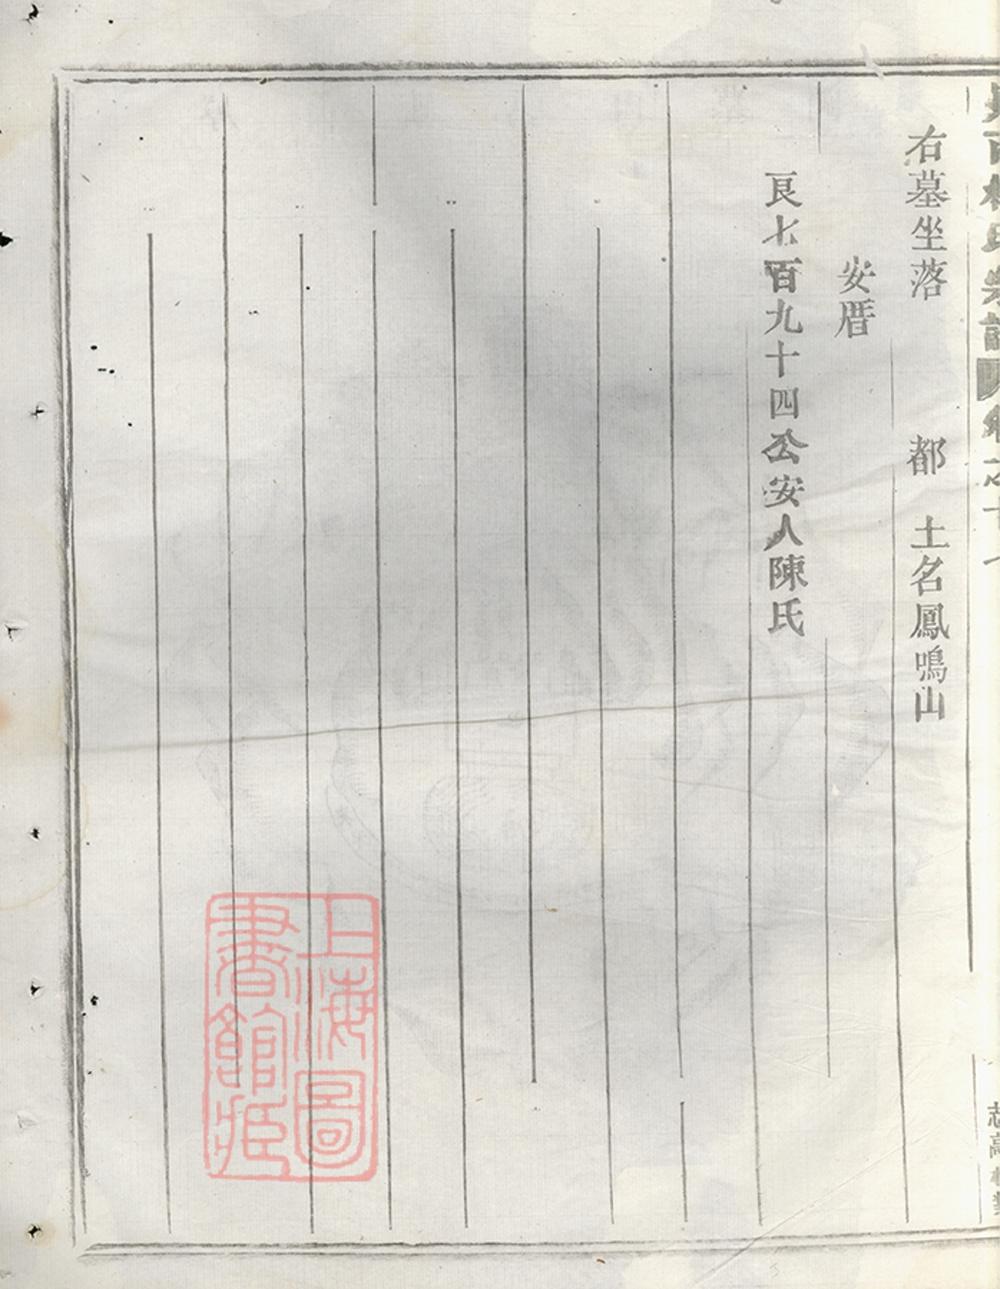 右墓坐落 都 土名鳳鳴山
安厝
艮七百九十四公安人陳氏
上海圖
書館藏